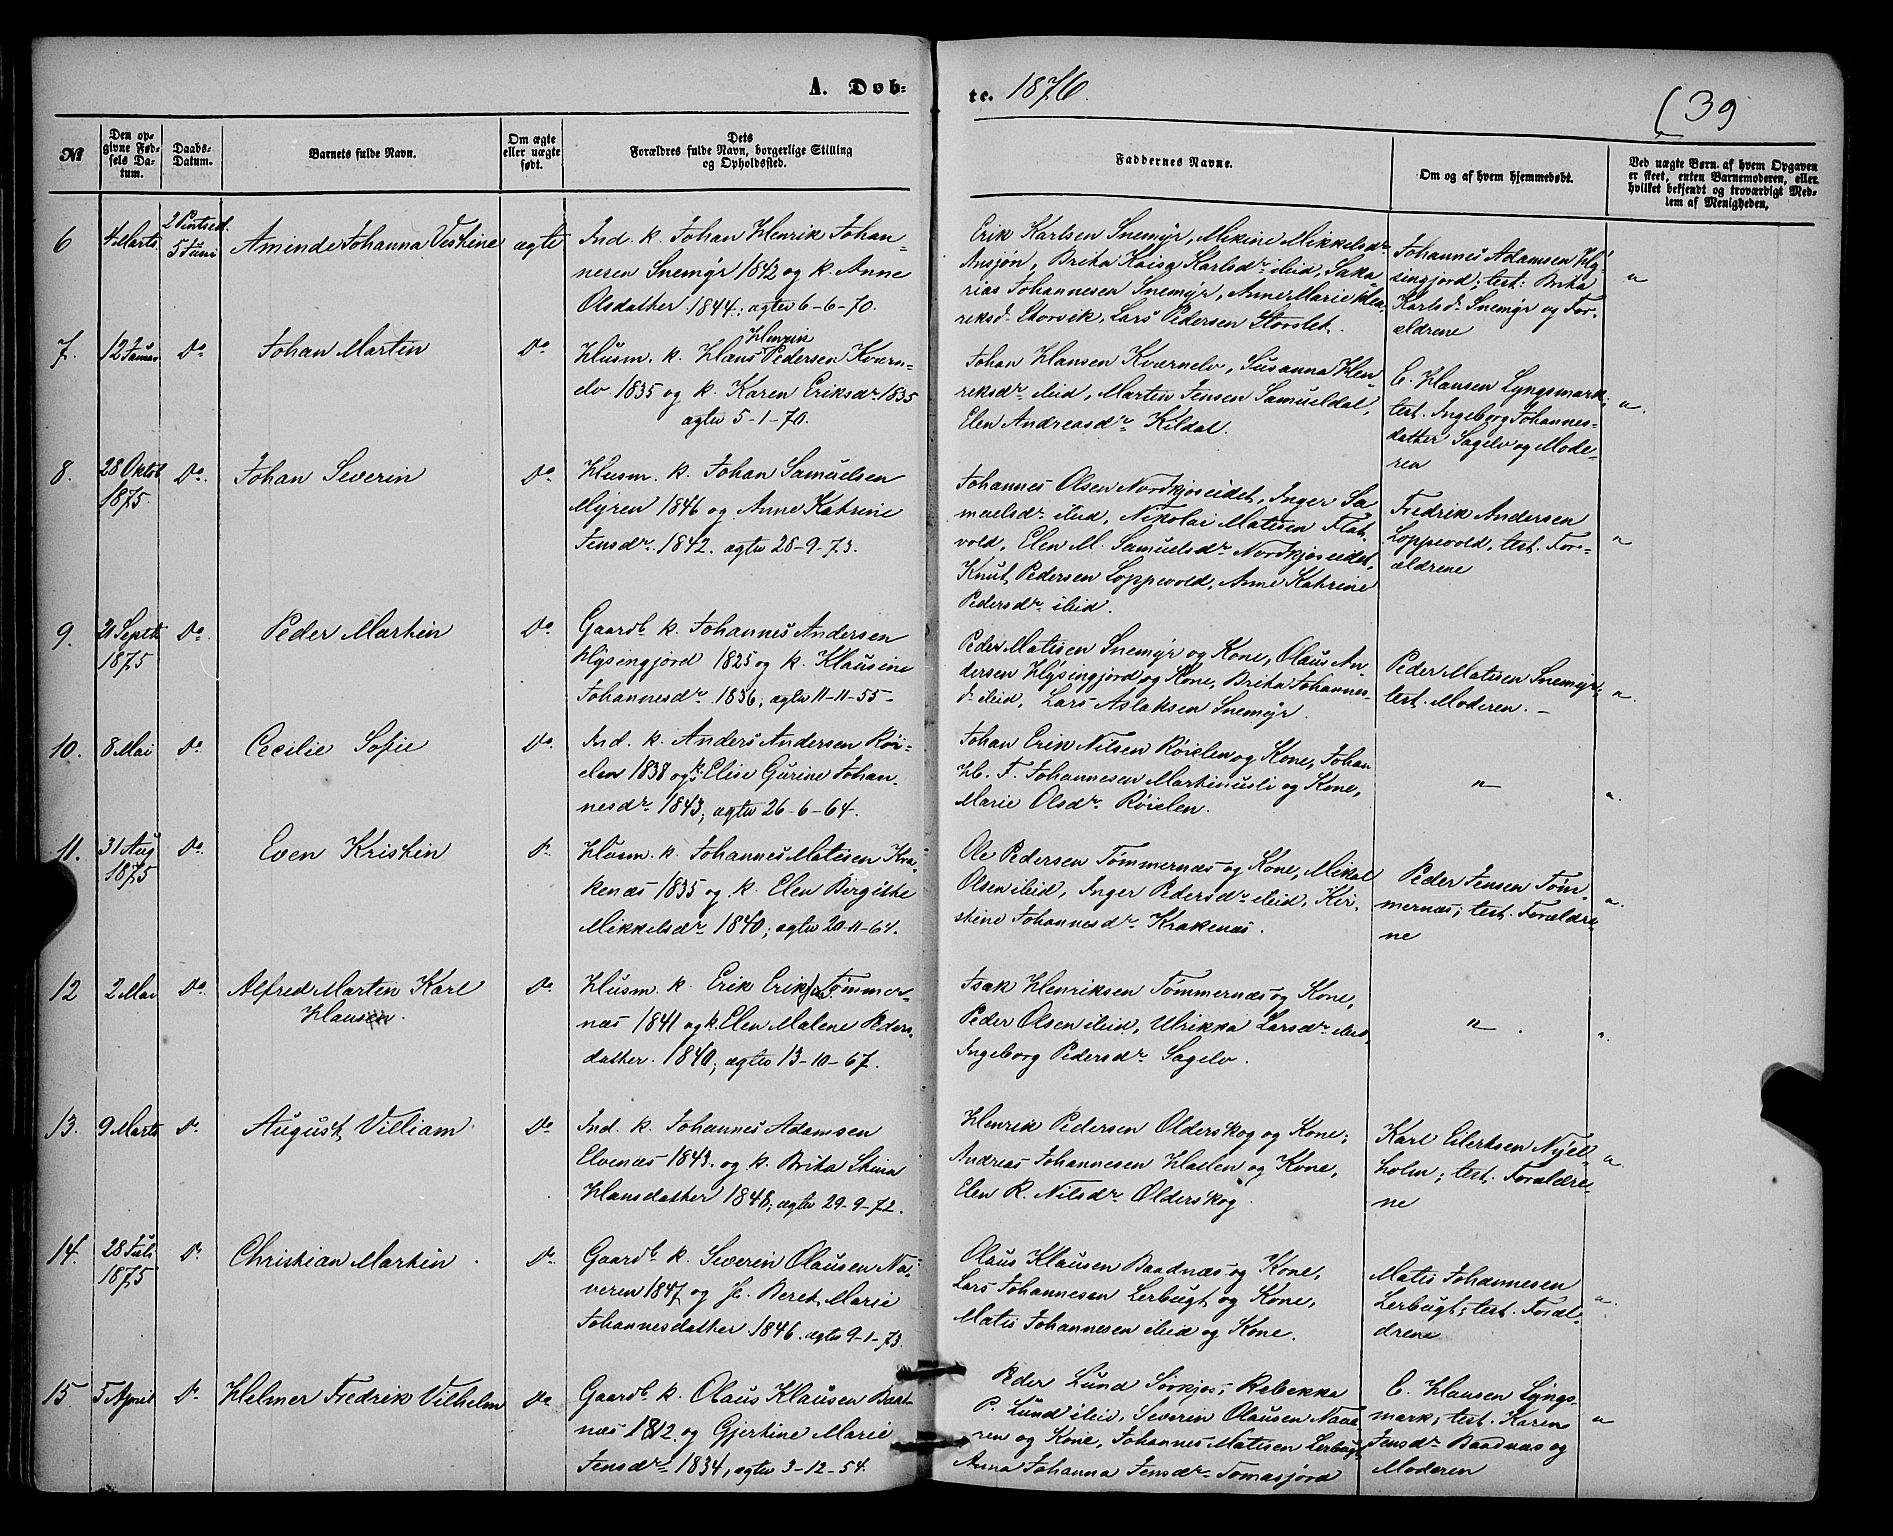 A. Døb-
te. 1876.
39
№
Den op-
givne Fød-
sels Da-
tum.
Daabs-
Datum.
Barnets fulde Navn.
Om ægte
eller uægte
født.
Dets
Forældres fulde Navn, borgerlige Stilling
og Opholdsted.
Faddernes Navne.
Om og af hvem hjemmedøbt.
Ved uægte Børn af hvem Opgaven
er skeet, enten Barnemoderen, eller
hvilket bekjendt og troværdigt Med-
lem af Menigheden,
6
4 Marts
2 Pintsed.
5 Juni
Aminde Johanna Vestine
ægte
Ind. k. Johan Henrik Johan-
nesen Snemyr 1842 og k. Anne
Olsdatter 1844; ægtev 6-6-70.
Erik Karlsen Snemyr, Mikine Mikkelsdr
Ansjøn, Brita Kaisa Karlsdr ibid, Saka-
rias Johannesen Snemyr, Anne Marie Hen-
reksdr Storvik, Lars Pedersen Storslet.
Johannes Adamsen Hy-
singjord; test: Brita
Karlsd. Snemyr og For-
ældrene
"
7.
12 Januar
Do
Johan Martin
Do
Husm. k. Hans Henrik Pedersen Kvern-
elv 1835 og k. Karen Eriksdr 1835
ægtev 5-1-70.
Johan Hansen Kvernelv, Susanna Hen-
reksdr ibid, Martin Jensen Samueldal,
Elen Andreasdr Kildal.
C. Hansen Lyngsmark;
test. Ingeborg Johannes-
datter Sagelv og Mode-
ren
"
8.
28 Oktob
1875.
Do.
Johan Severin
Do
Husm. k. Johan Samuelsen
Myren 1846 og Anne Katrine
Jensdr. 1842. ægtev 28-9-73.
Johannes Olsen Nordkjoseidet, Inger Sa-
muelsdr ibid, Nikolai Matisen Flat-
vold, Elen M. Samuelsdr Nordkjoseidet,
Knut Pedersen Loppevold, Anne Katrine
Pedersdr ibid.
Fredrik Andersen
Loppevold, test. For-
ældrene
"
9.
21 Septb.
1875
Do.
Peder Martin
Do
Gaardb. k. Johannes Andersen
Hysingjord 1825 og k. Klausine
Johannesdr 1836; ægtev 11-11-55-
Peder Matisen Snemyr og Kone, Olaus An-
dersen Hysingjord og Kone, Brita Johannes-
dr ibid, Lars Aslaksen Snemyr.
Peder Matisen Snemyr;
test. Moderen. -
"
10.
8 Mai
Do
Cecilie Sofie
Do.
Ind. k. Anders Andersen Røi-
elen 1838 og k. Elise Gurine Johan-
nesdr. 1843; ægtev 26-6-64.
Johan Erik Nilsen Røielen og Kone, Johan
H. F. Johannesen Martinusli og Kone,
Marie Olsdr. Røielen.
"
"
11.
31 Aug
1875
Do.
Even Kristin
Do
Husm. k. Johannes Matisen Kra-
kenæs 1835 og k. Elen Bergitte
Mikkelsdr 1840; ægtev 20-11-64.
Ole Pedersen Tømmernæs og Kone, Mikal
Olsen ibid, Inger Pedersdr ibid, Kir-
stine Johannesdr Krakenæs.
Peder Jensen Tøm-
mernæs; test. Forældre-
ne
"
12
2 Mai
Do.
Alfred Martin Karl
Hansen.
Do
Husm. k. Erik Eriksen Tømmer-
næs 1841 og k. Elen Malene Peders-
datter. 1840; ægtev 13-10-67.
Isak Henriksen Tømmernæs og Kone,
Peder Olsen ibid, Ulrikka Larsdr ibid,
Ingeborg Pedersdr Sagelv.
"
"
13.
9 Marts
Do
August Villiam
Do
Ind. k. Johannes Adamsen
Elvenæs 1843. og k. Brita Stina
Hansdatter 1848; ægtev 29-9-72.
Henrik Pedersen Olderskog og Kone;
Andreas Johannesen Hælen og Kone,
Elen K. Nilsdr Olderskog.
Karl Eilertsen Nyel-
holm; test. Forældre-
ne
"
14.
28 Juli
1875
Do
Christian Martin
Do
Gaardb. k. Severin Olausen Na-
veren 1847 og k. Beret Marie
Johannesdatter 1846. ægtev 9-1-73.
Olaus Klausen Baadnæs og Kone,
Lars Johannesen Lerbugt og Kone,
Matis Johannesen ibid og Kone.
Matis Johannesen
Lerbugt; test. Foræl-
drene
"
15.
5 April
Do
Helmer Fredrik Vilhelm
Do
Gaardb. k. Olaus Klausen Baad-
næs 1812. og Gjertine Marie
Jensdr 1834, ægtev 3-12-54.
Peder Lund Sørkjos; Rebekka
P. Lund ibid, Severin Olausen Nave-
ren og Kone, Johannes Matisen Lerbugt,
Anna Johanna Jensdr Tomasjord
C. Hansen Lyngs-
mark; test. Karen
Jensdr Baadnæs og
Moderen
"